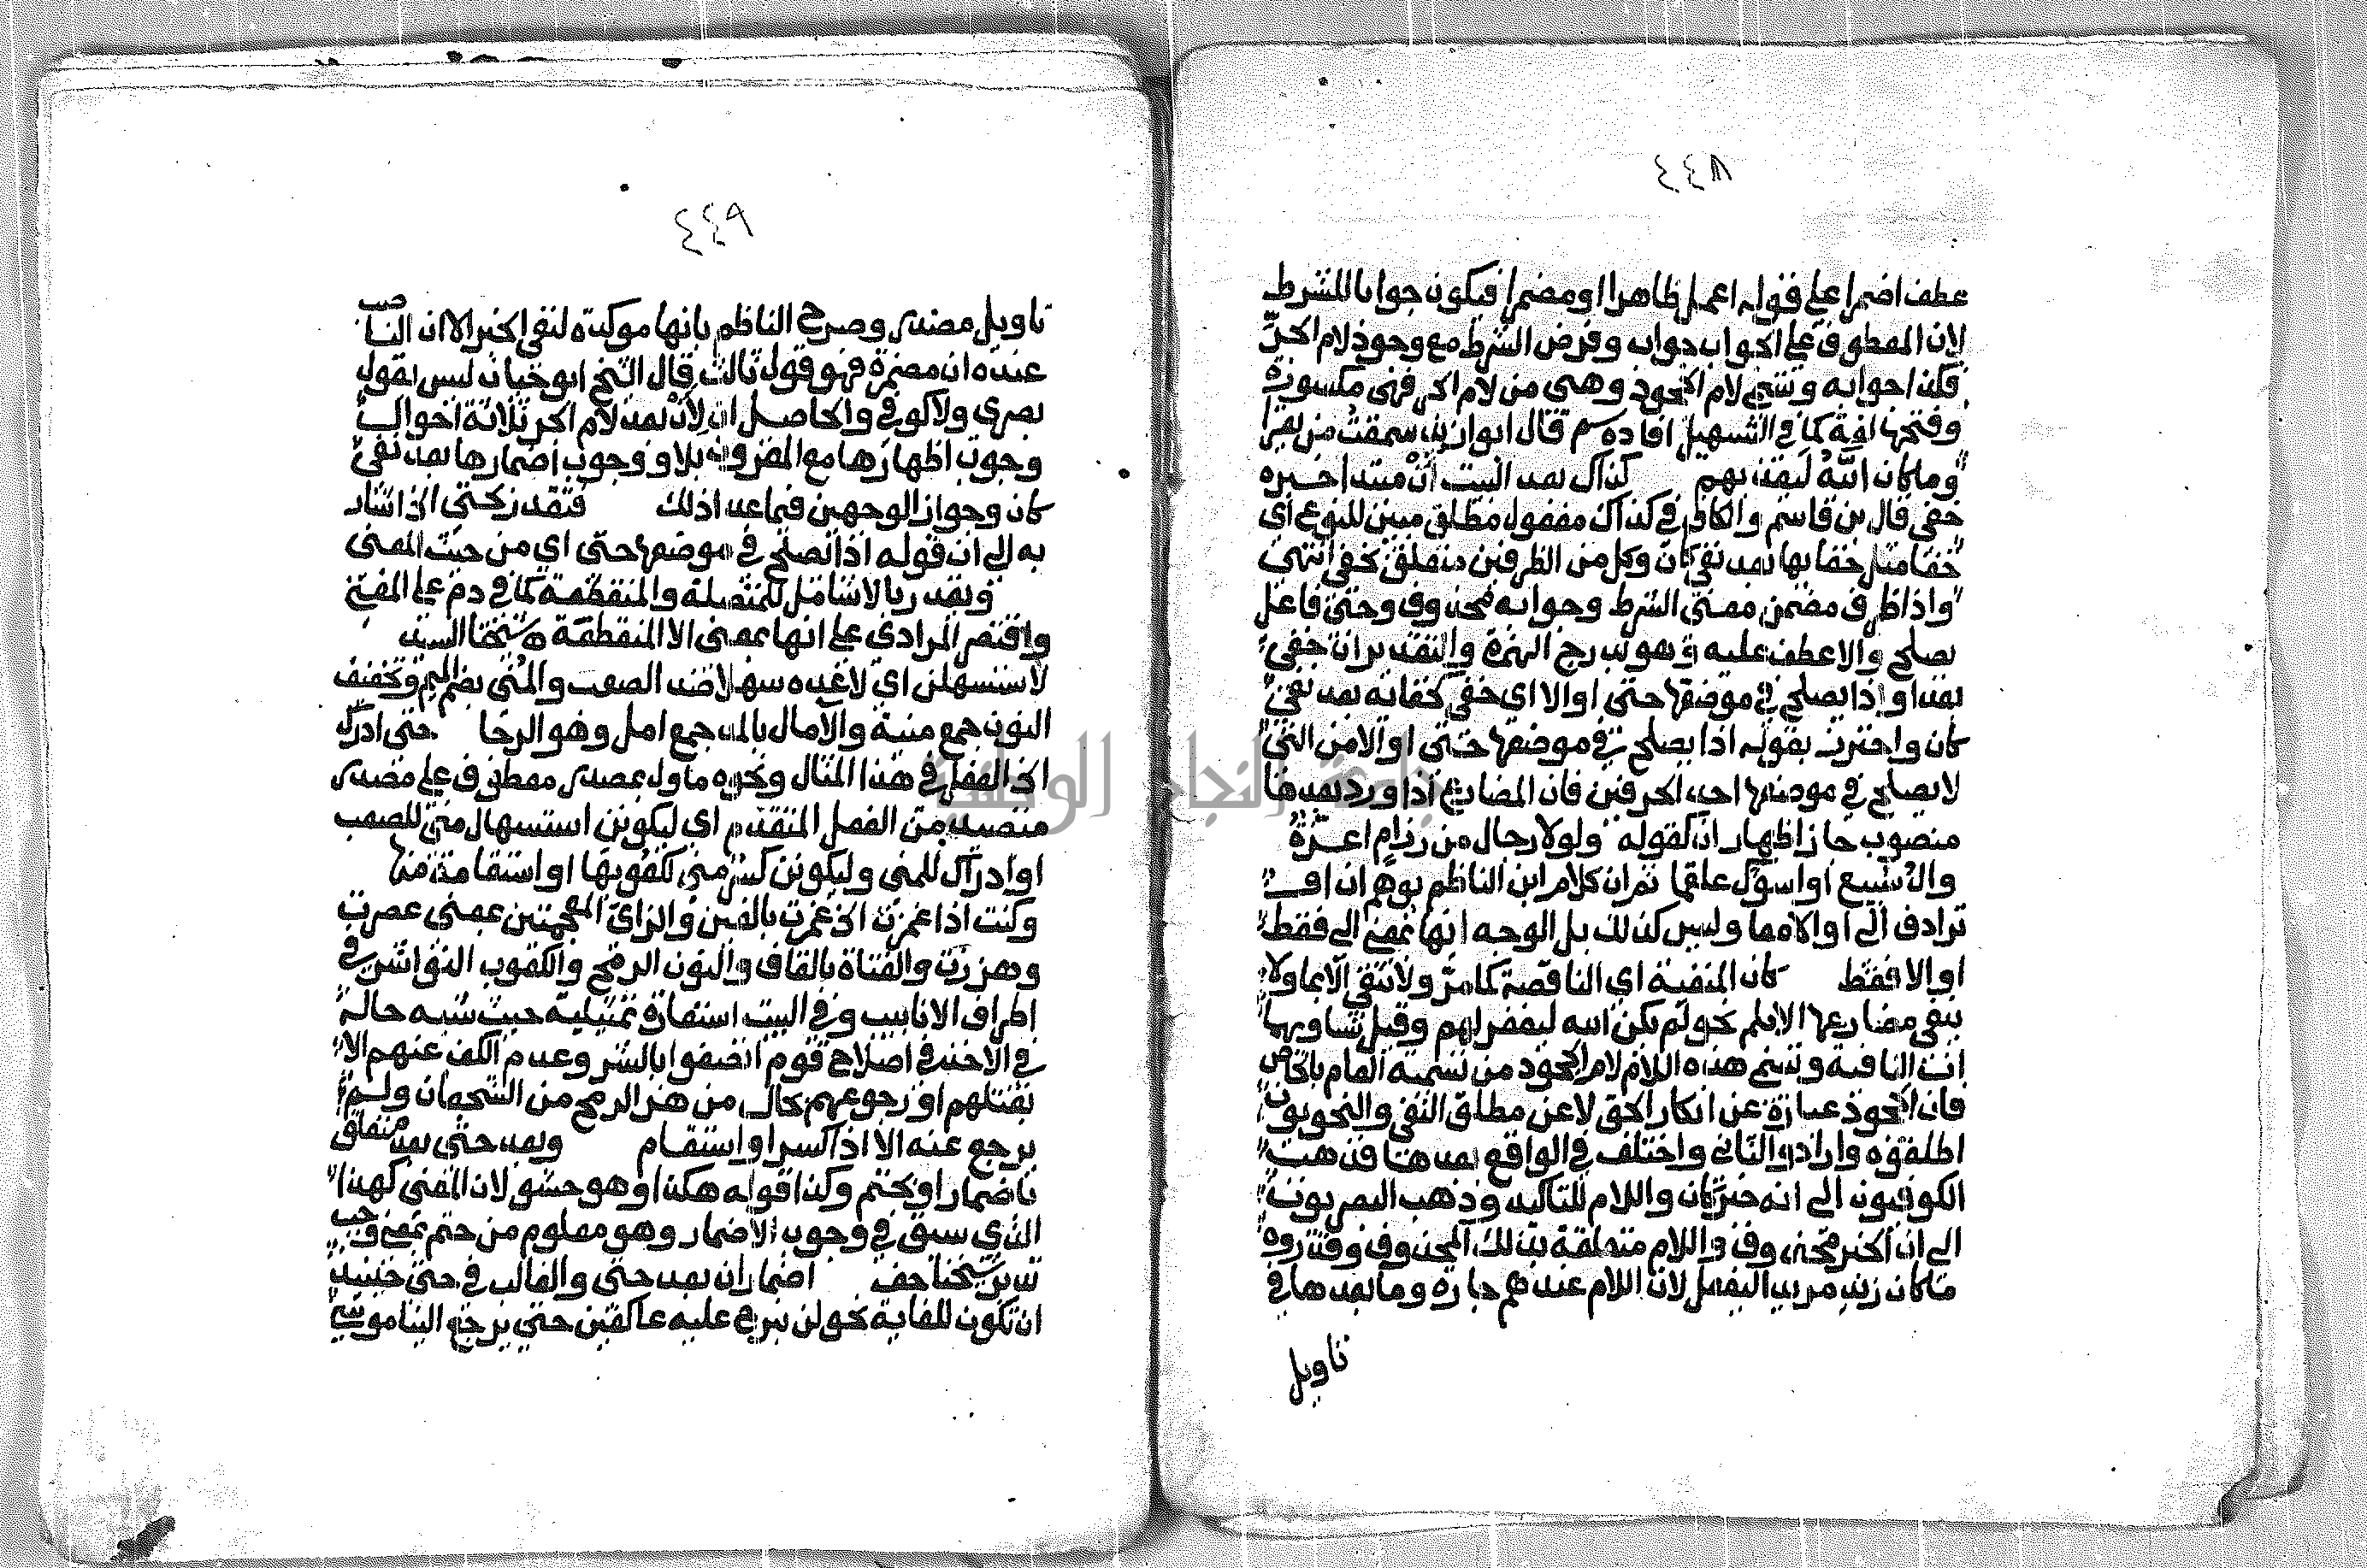 ٤٤٨
عطف اضمرا على قوله اعمل ظاهرا او مضمرا فيكون جوابا للشرط
لان المعطوف على الجواب جواب وفرض الشرط مع وجود لام الجر
فكذا جوابه وتسمى لام الجحود وهى من لام الجر فهى مكسورة
وفتحها لغة كما في التسهيل افاده سم قال ابوا زيد سمعت من يقرا
وما كان الله ليعذبهم كذاك بعد البيت ان مبتدا خبره
خفى قال بن قاسم والكاف في كذاك مفعول مطلق مبين للنوع اى
خفا مثل خفايها بعد نفى كان وكل من الظرفين متعلق بخفى انتهى
واذا ظرف مضمن معنى الشرط وجوابه محذوف وحتى فاعل
يصلح والا عطف عليه وهو بدرج الهمزة والتقدير ان خفى
بعد او اذا يصلح في موضعها حتى او الا اى خفى كخفائه بعد نفى
كان واحترز بقوله اذا يصلح في موضعها حتى او الا من التى
لا يصلح في موضعها احد الحرفين فان المضارع اذا ورد بعدها
منصوب جاز اظهار ان كقوله ولولا رجال من رزام اعزة
وال سبيع او اسوك علقما ثم ان كلام ابن الناظم يوهم ان او
ترادف الى او الا معا وليس كذلك بل الوجه انها بمعنى الى فقط
او الا فقط كان المنفية اى الناقصة كما مر ولا تنفى الا بما ولا
ينفى مضارعها الا بلم نحو لم يكن الله ليغفر لهم وقيل تساويهما
ان النافية وتسمى هذه اللام لام الجحود من تسمية العام بالخاص
فان الجحود عبارة عن انكار الحق لا عن مطلق النفى والنحويون
اطلقوه وارادوا الثانى واختلف في الواقع بعدها فذهب
الكوفيون الى انه خبر كان واللام للتاكيد وذهب البصريون
الى ان الخبر محذوف واللام متعلقة بذلك المحذوف وقدروه
ما كان زيد مريدا ليفعل لان اللام عندهم جارة وما بعدها في
تاويل
٤٤٩
تاويل مصدر وصرح الناظم بانها موكدة لنفى الخبر الا ان الناصب
عنده ان مضمرة فهو قول ثالث قال الشيخ ابو حيان ليس بقول
بصرى ولا كوفى والحاصل ان لان بعد لام الجر ثلاثة احوال
وجوب اظهارها مع المقرون بلا ووجوب اضمارها بعد نفى
كان وجواز الوجهين فيما عدا ذلك فتقدر بحتى الخ اشار
به الى ان قوله اذا يصلح في موضعها حتى اي من حيث المعنى
وتقدر بالا شامل للمتصلة والمنقطعة كما في دم على المغنى
واقتصر المرادى على انها بمعنى الا المنقطعة ه شيخنا السيد
لاستسهلن اي لاعده سهلا ضد الصعب والمنى بضم الميم وتخفيف
النون جمع منية والآمال بالمد جمع امل وهو الرجا حتى ادرك
الخ الفعل في هذا المثال ونحوه ماول بمصدر معطوف على مصدر
متصيد من الفعل المتقدم اي ليكونن استسهال منى للصعب
او ادراك للمنى وليكونن كسر منى لكعوبها او استقامة منها
وكنت اذا غمزت الخ غمزت بالغين والزاى المعجمتين بمعنى عصرت
وهززت والقناة بالقاف والنون الرمح والكعوب النواشز في
اطراف الانابيب وفي البيت استعارة تمثيلية حيث شبه حاله
في الاخذ في اصلاح قوم اتصفوا بالشر وعدم الكف عنهم الا
بقتلهم او رجوعهم بحال من هز الرمح من الشجعان ولم
يرجع عنه الا اذا كسر او استقام وبعد حتى بعد متعلق
باضمار او بحتم وكذا قوله هكذا وهو حشو لان المعنى كهذا
الذي سبق في وجوب الاضمار وهو معلوم من حتم بمعنى وجب
تدبر شيخنا حف اضمار ان بعد حتى والغالب في حتى حينئذ
ان تكون للغاية نحو لن نبرح عليه عاكفين حتى يرجع الينا موسى